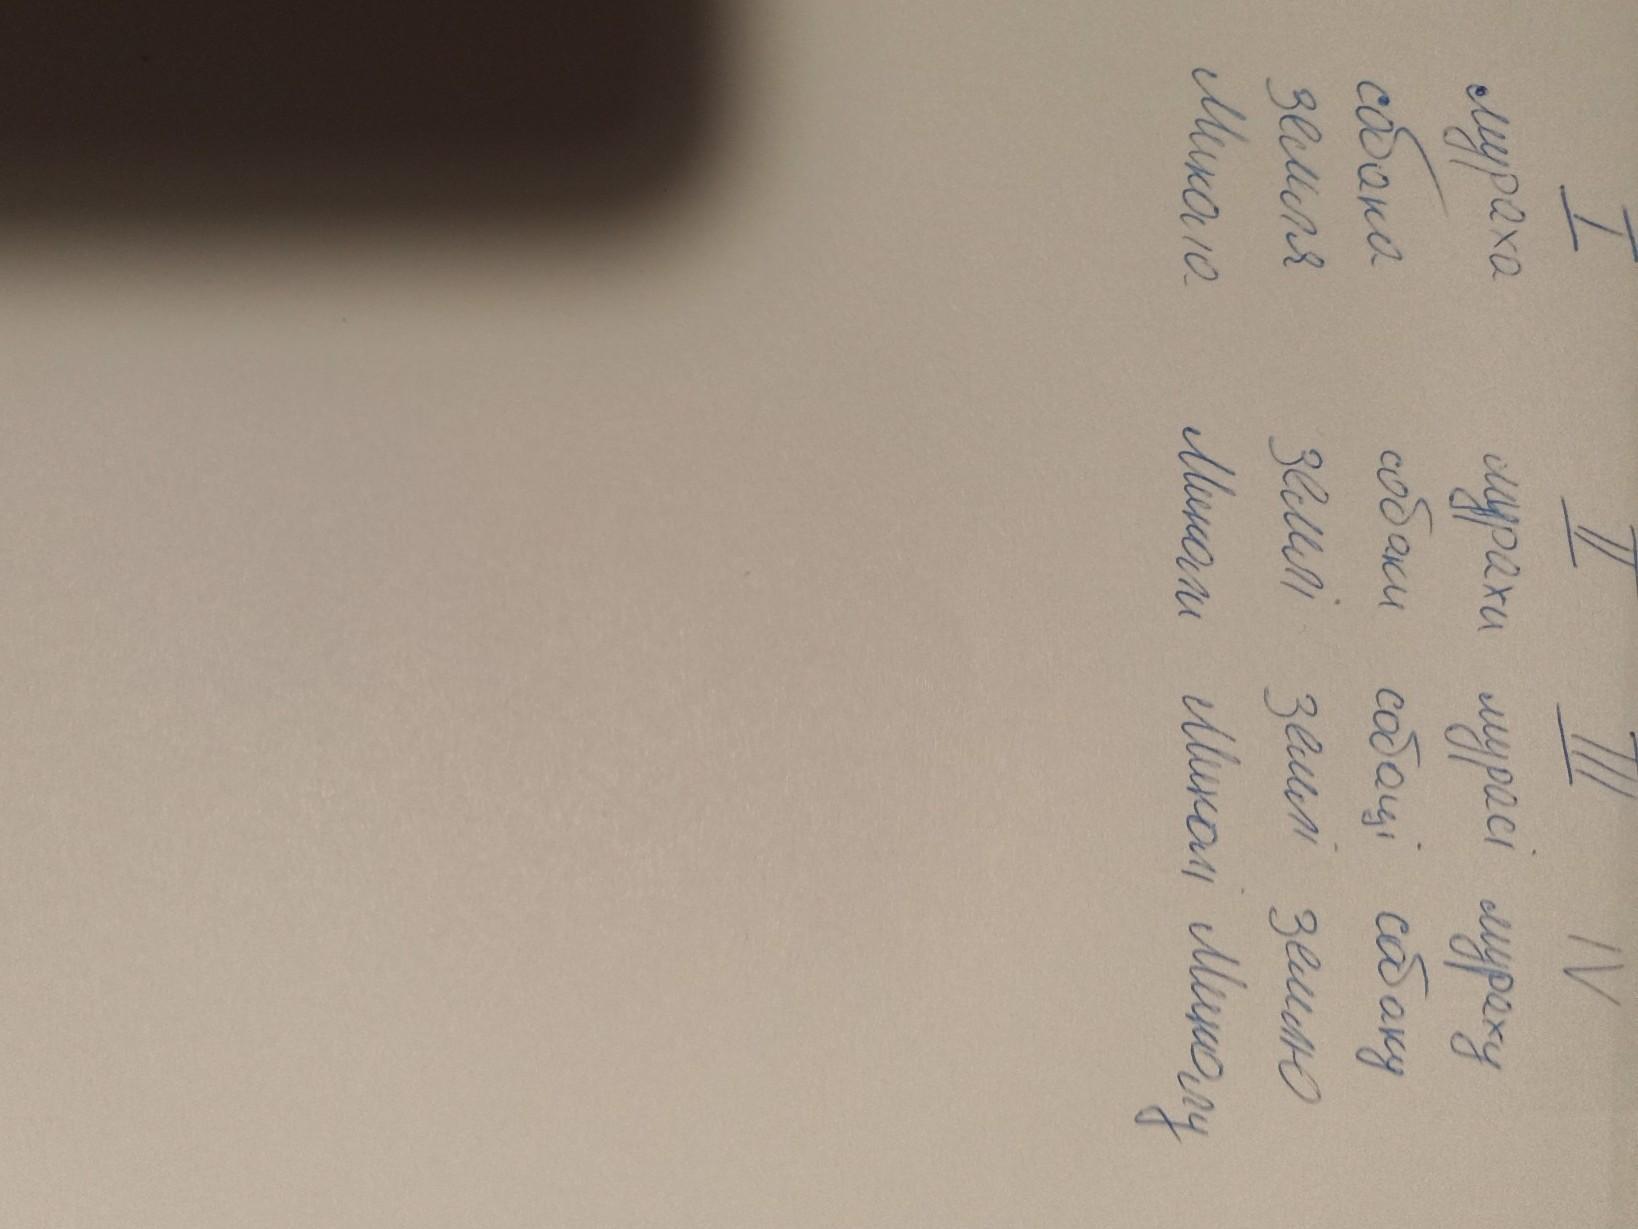 I II III IV
мураха мурахи мурасі мураху
собака собаки собаці собаку
земля землі землі землю
Микола Миколи Миколі Миколу